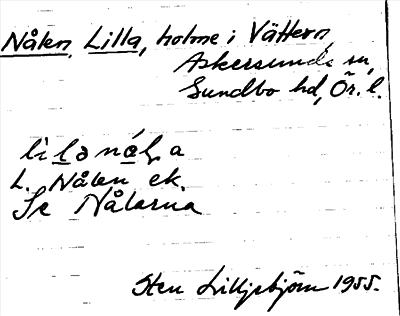 Nålen, Lilla, holme i Vättern,
Askersunds sn,
Sundbo hd, Ör. l.
L. Nålen ek.
Se Nålarna
Sten Lilljebjörn 1955.